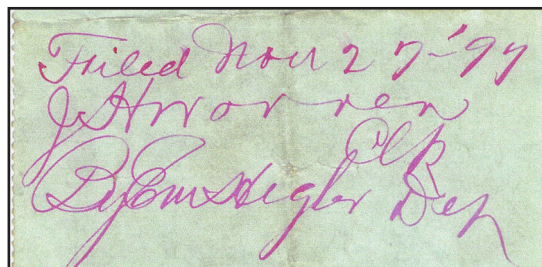 Filed Nov 27-'97
J. H. Worren
Clk
By Em Hegler Dep